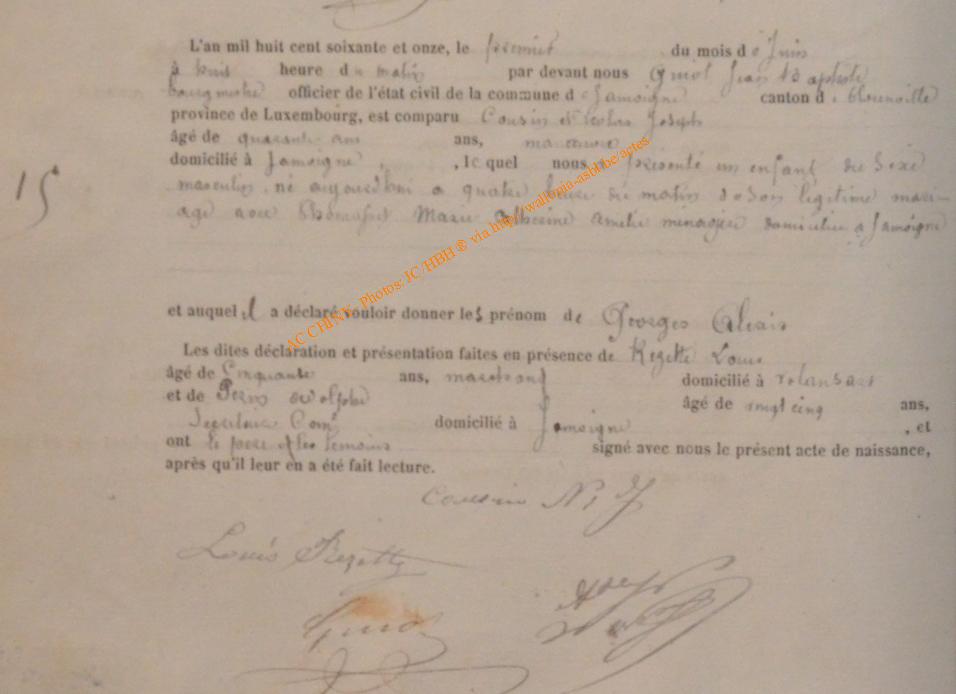 L'an mil huit cent soixante et onze, le premier du mois de Juin
à huit heure du matin par devant nous Guiot Jean Baptiste
bourgmestre officier de l'état civil de la commune de Jamoigne canton d
province de Luxembourg, est comparu Cousin Nicolas Joseph
âgé de quarante ans ans, manœuvre
domicilié à Jamoigne, lequel nous a présenté un enfant du sexe
15
masculin, né aujourd'hui a quatre heure du matin de son légitime mari-
age avec Marie Catherine Amelie menagère domiciliée a Jamoigne
et auquel il a déclaré vouloir donner les prénom de Georges
Les dites déclaration et présentation faites en présence de Rezette Louis
âgé de Cinquante ans, marchand domicilié à
et de Adolphe âgé de vingt cinq ans,
Secrétaire Com¹ domicilié à Jamoigne, et
ont le pere & les temoins signé avec nous le présent acte de naissance,
après qu'il leur en a été fait lecture.
Cousin N. J
Louis Rezette
Guiot
AC CHINY Photos: JC/HBH ® via http//wallonia-asbl.be/actes